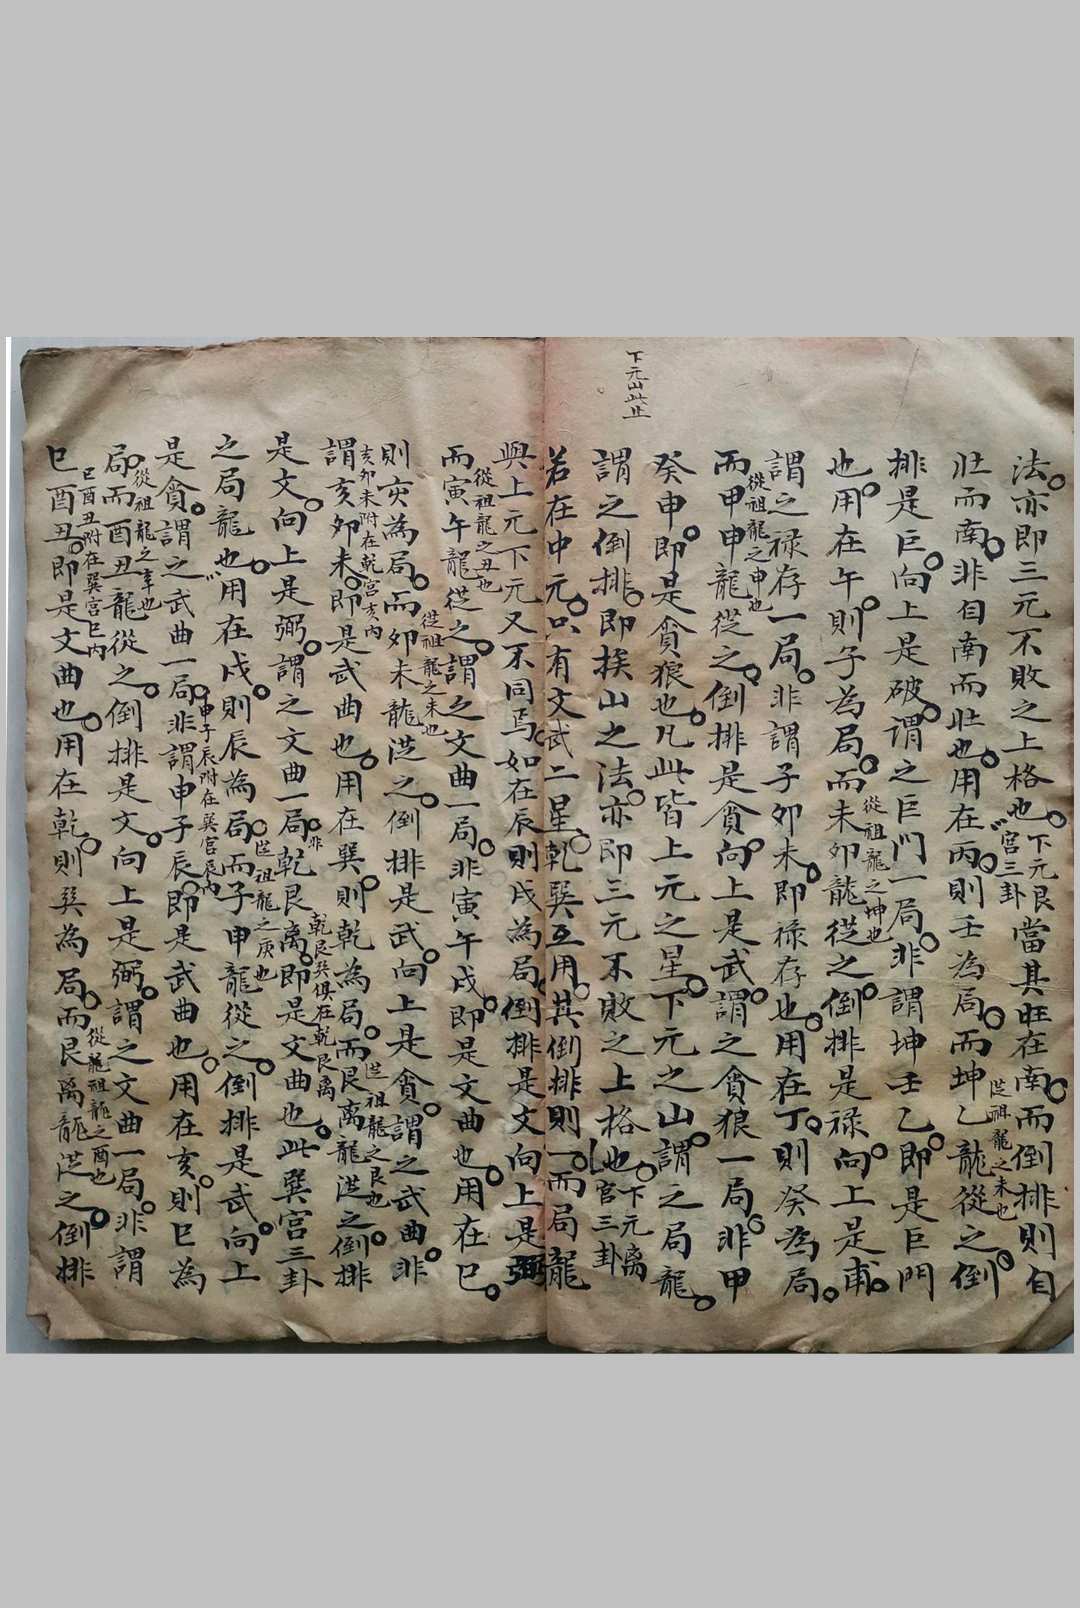 下元山此止
法亦即三元不敗之上格也下元艮宮三卦當其旺在南而倒排則自
北而南非自南而北也用在丙則壬為局而坤乙龍從之倒
從祖龍之未也
排是巨向上是破谓之巨门一局非謂坤壬乙即是巨門
也用在午則子為局而未卯龍從之倒排是祿向上是甫
從祖龍之坤也
謂之祿存一局非謂子卯未即祿存也用在丁則癸為局
而甲申龍從之倒排是貪向上是武謂之貪狼一局非甲
從祖龍之申也
癸申即是貪狼也凡此皆上元之星下元之山謂之局龍
謂之倒排即挨山之法亦即三元不敗之上格也下元離宮三卦
若在中元只有文武二星乾巽互用其倒排則一而局龍
與上元下元又不同焉如在辰則戌為局倒排是文向上是弼
而寅午龍從之謂之文曲一局非寅午戌即是文曲也用在巳
從祖龍之丑也
則亥為局而卯未龍從之倒排是武向上是貪謂之武曲非
從祖龍之未也
謂亥卯未即是武曲也用在巽則乾為局而艮離龍從之倒排
亥卯未附在乾宮亥內
從祖龍之艮也
是文向上是弼謂之文曲一局非乾艮離即是文曲也此巽宮三卦
乾艮巽俱在乾艮離
之局龍也用在戌則辰為局而子申龍從之倒排是武向上
從祖龍之庚也
是貪謂之武曲一局非謂申子辰即是武曲也用在亥則巳為
申子辰附在巽宮辰內
局而酉丑龍從之倒排是文向上是弼謂之文曲一局非謂
從祖龍之辛也
巳酉丑即是文曲也用在乾則巽為局而艮离龍從之倒排
巳酉丑附在巽宮巳內
從龍祖龍之酉也